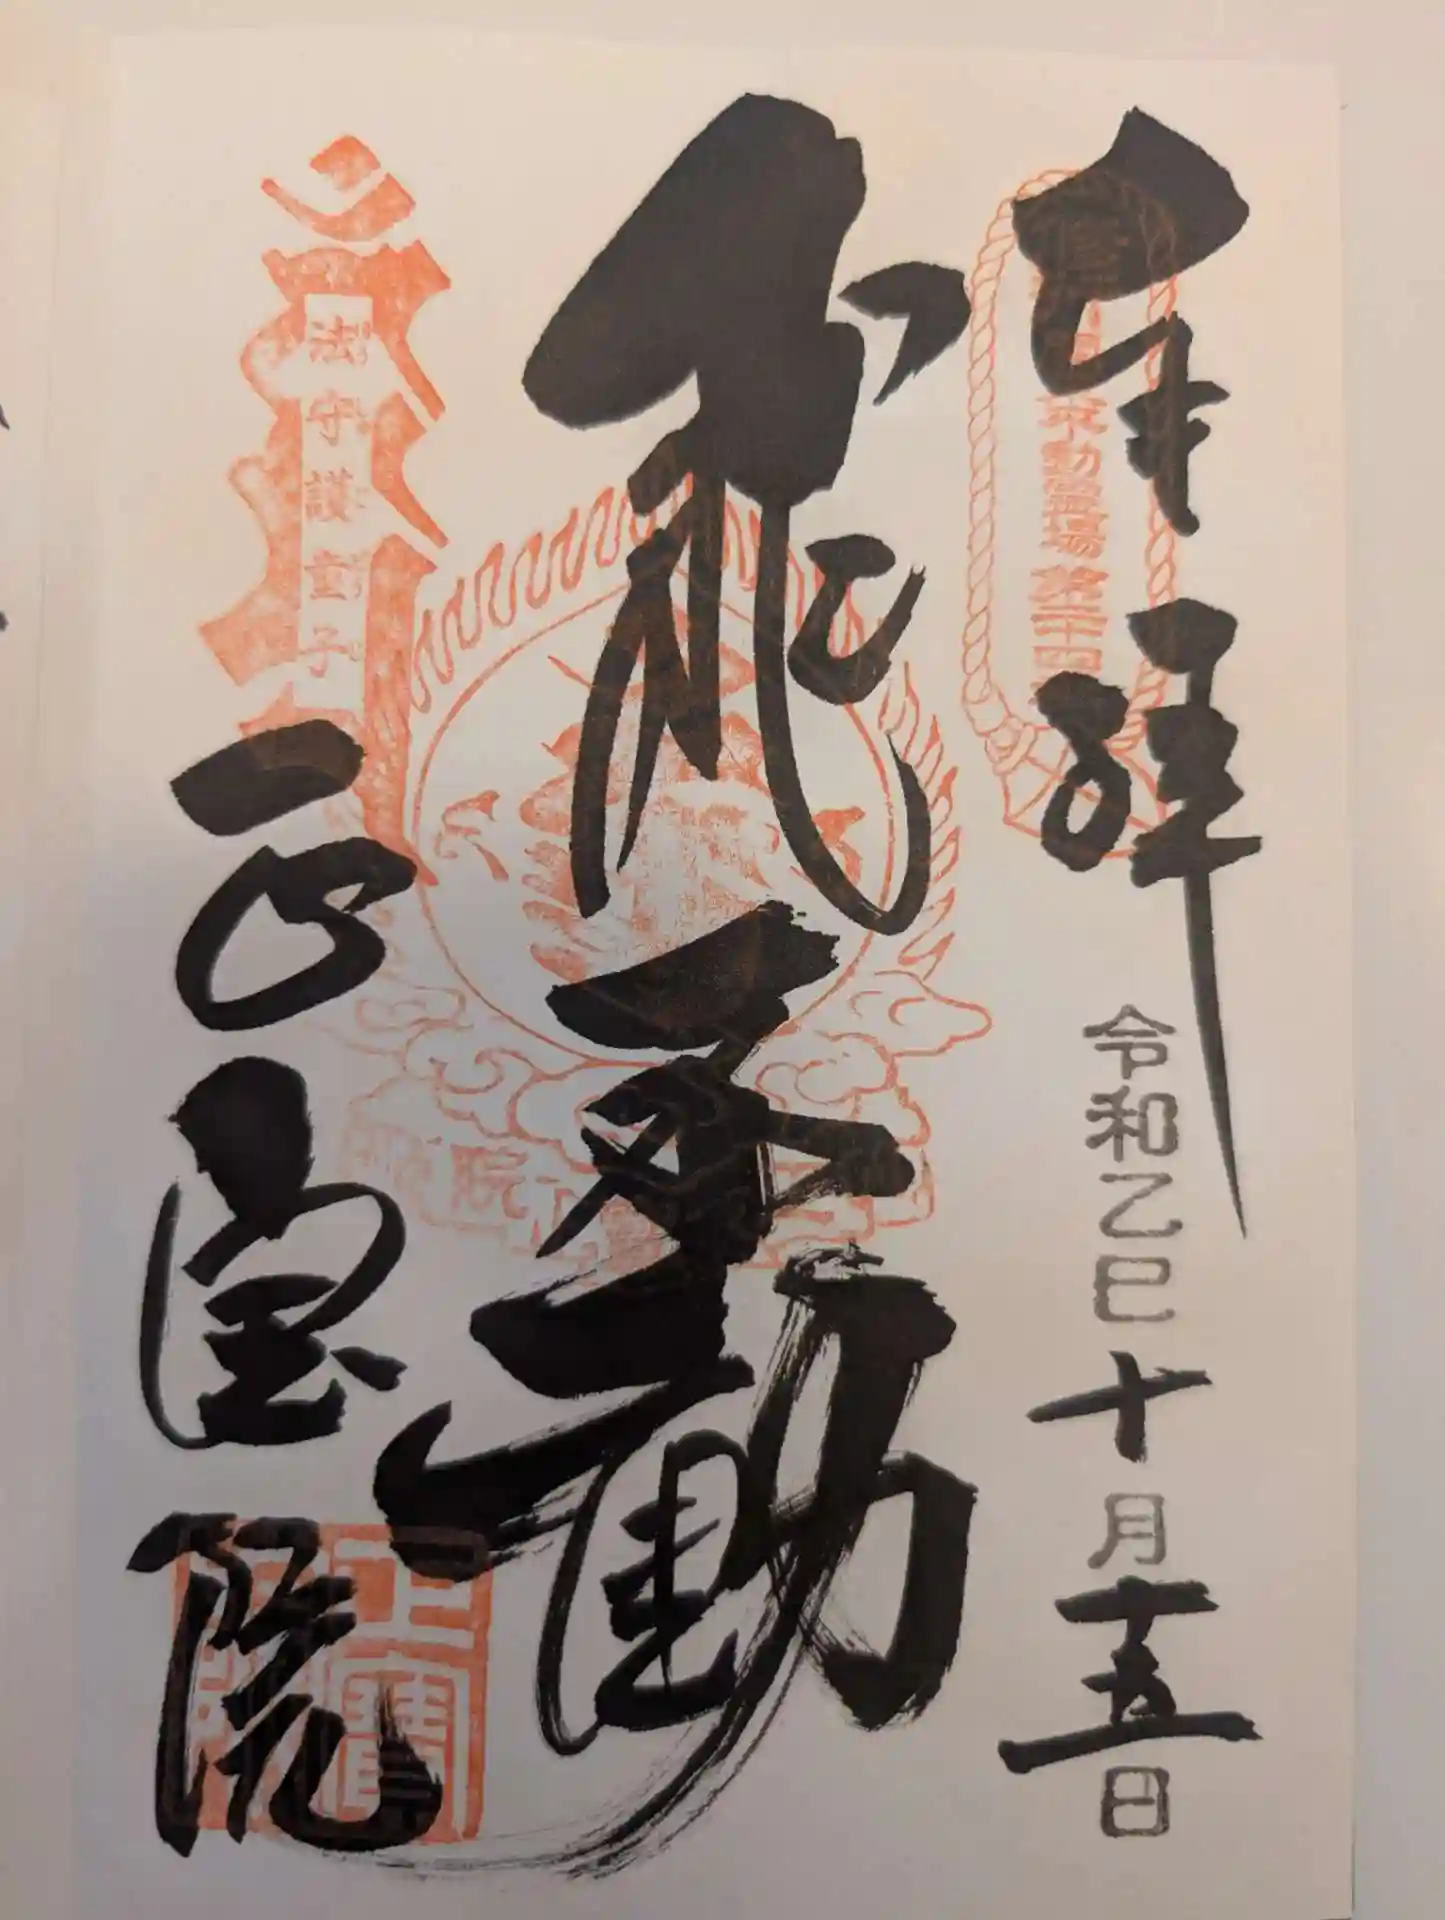 奉拝
令和乙巳十月十五日
不動霊場第二十四
飛不動
法守護童子
正宝院